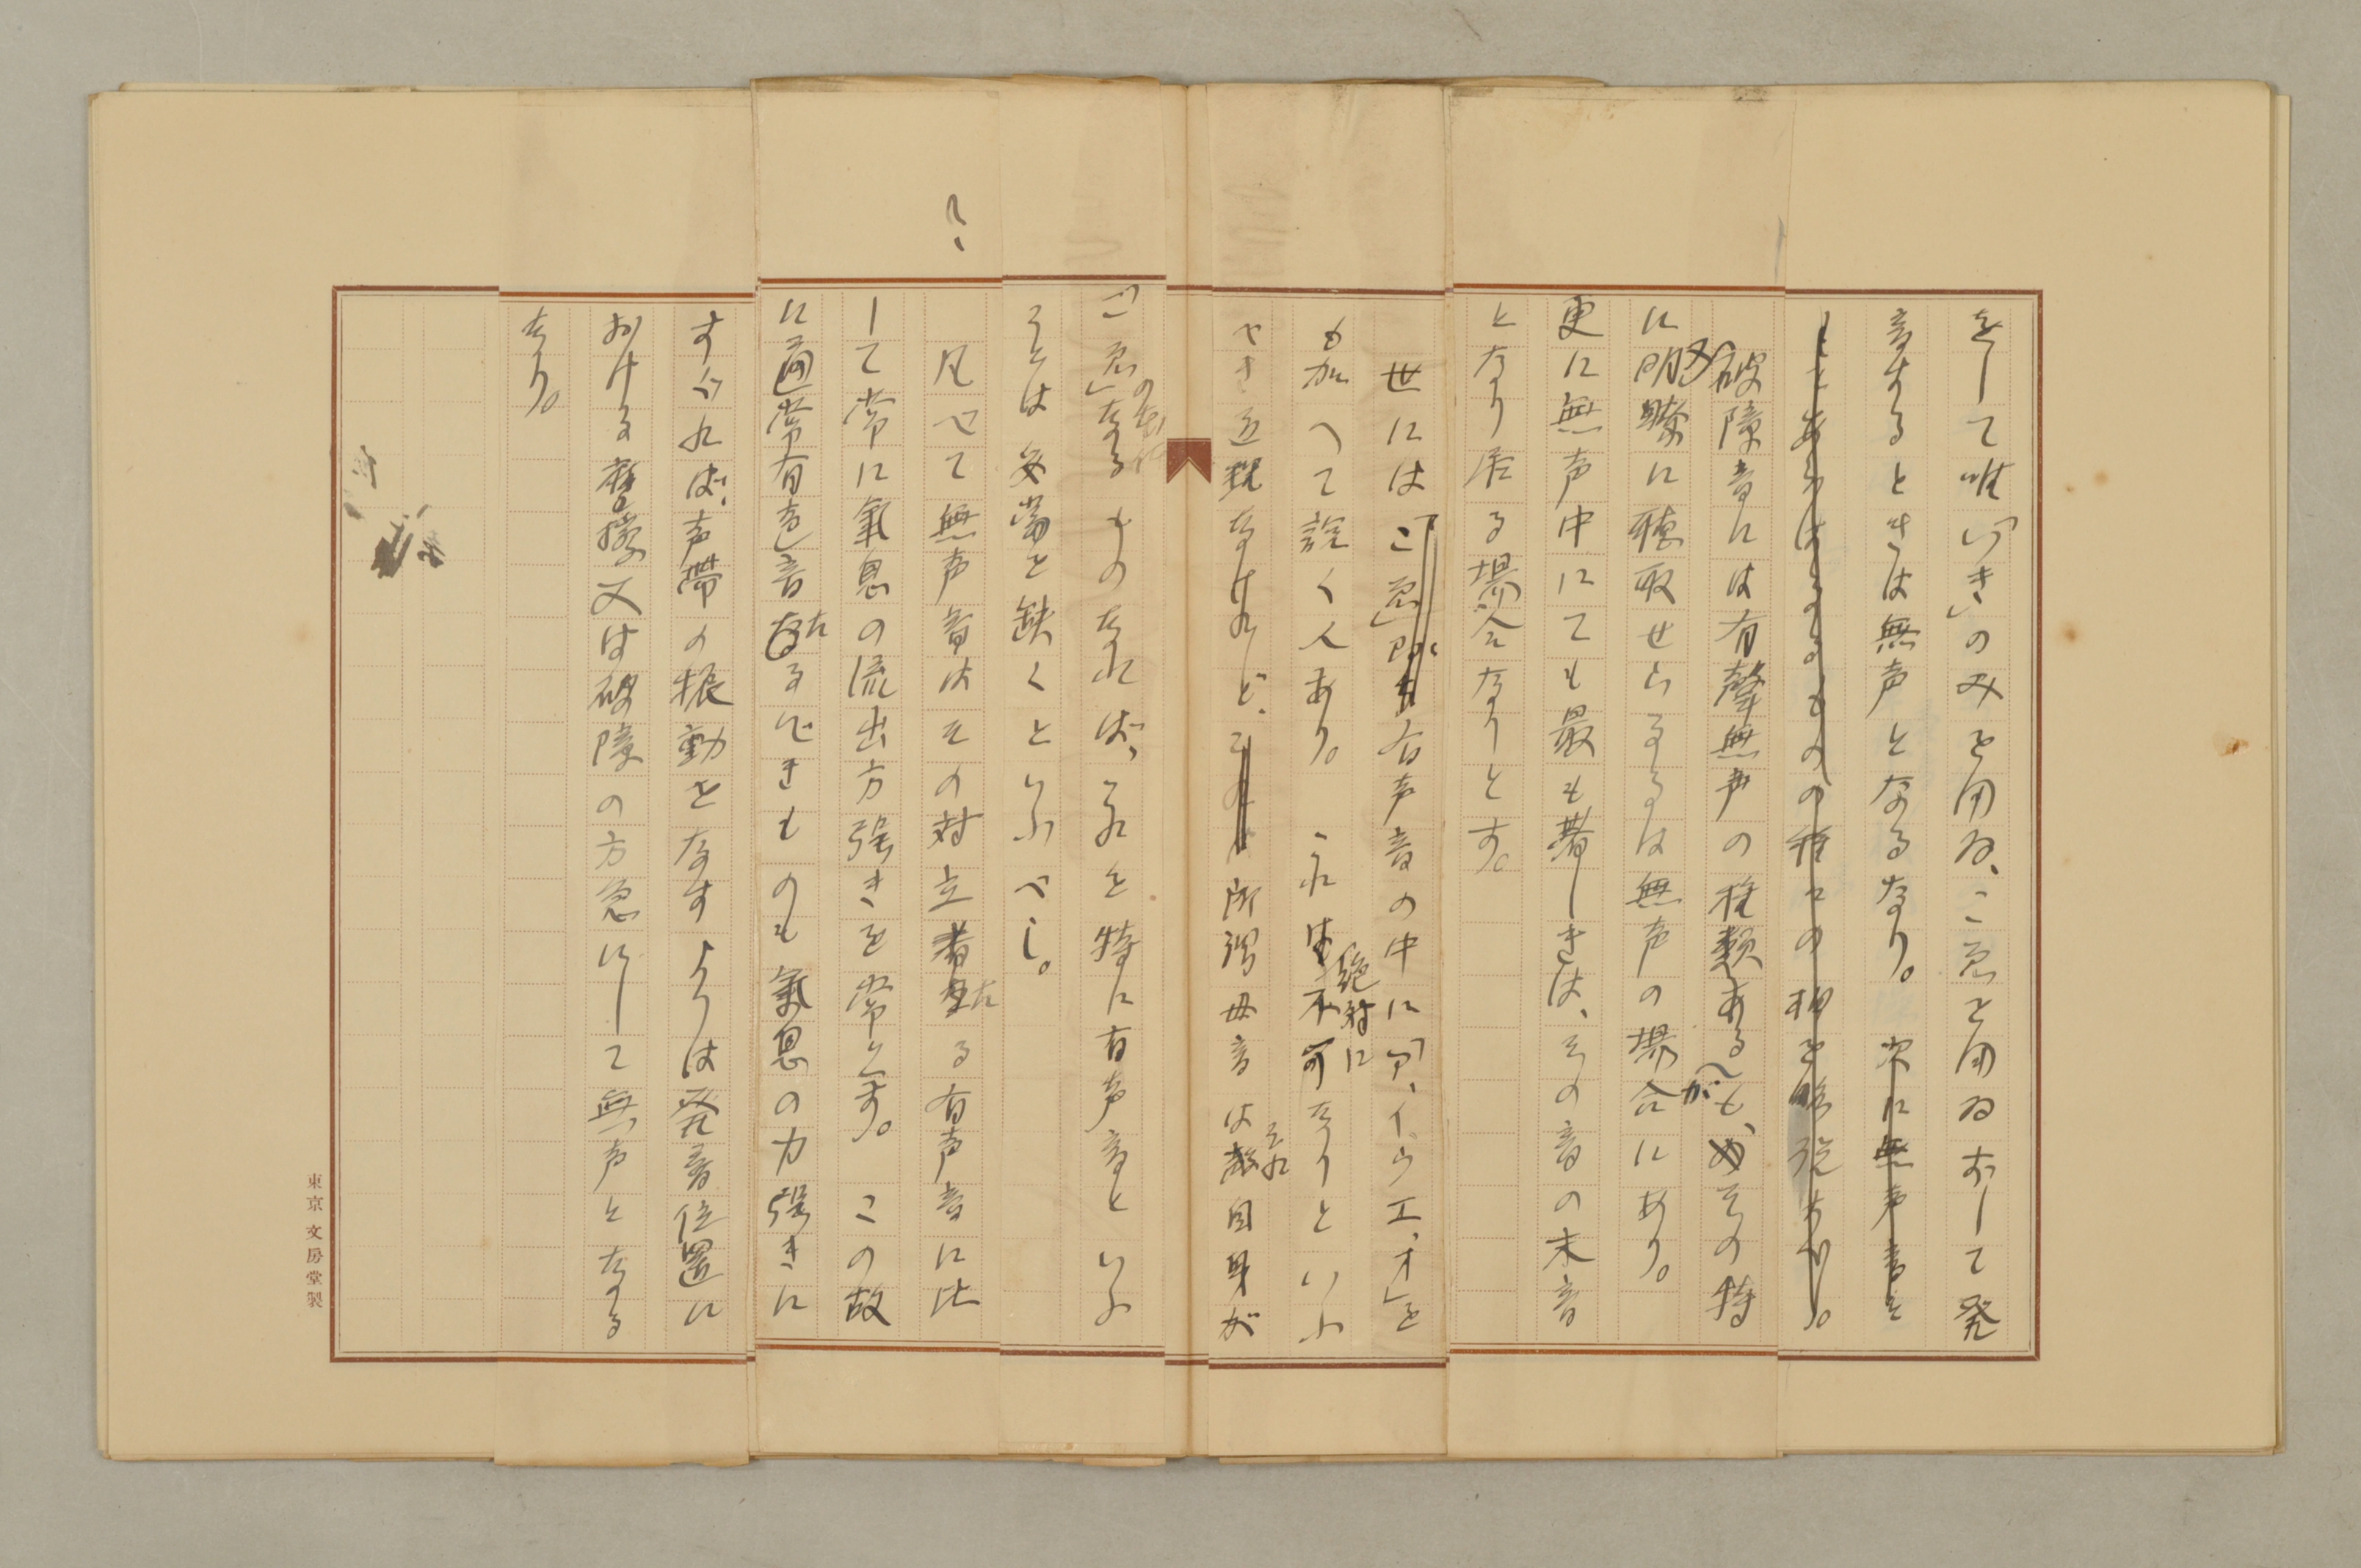 をして唯「いき」のみを用ゐ、こゑを用ゐずして発
音するときは無声となるなり。次に無声音を
破障音には有聲無声の種類あるも、その特
に明瞭に聴取せらるるは無声の場合にあり。
更に無声中にても最も著しきは、その音の末音
となり居る場合なりとす。
世には「こゑ」即ち有声音の中に「ア、イ、ウ、エ、オ」を
も加へて説く人あり。これ絶対に不可なりといふ
べき近親なけれど、所謂母音はそれ自身が
「こゑ」なるものなれば、これを特に有声音といふ
ことは妥當を缺くといふべし。
?
凡べて無声音はその対立者たる有声音に比
して常に氣息の流出方強きを常とす。この故
に通常有声音たるべきものも氣息の力強きに
すぐれば、声帯の振動をなすよりは発音位置に
おける摩擦又は破障の方急にして無声となる
なり。
東京 文房堂製